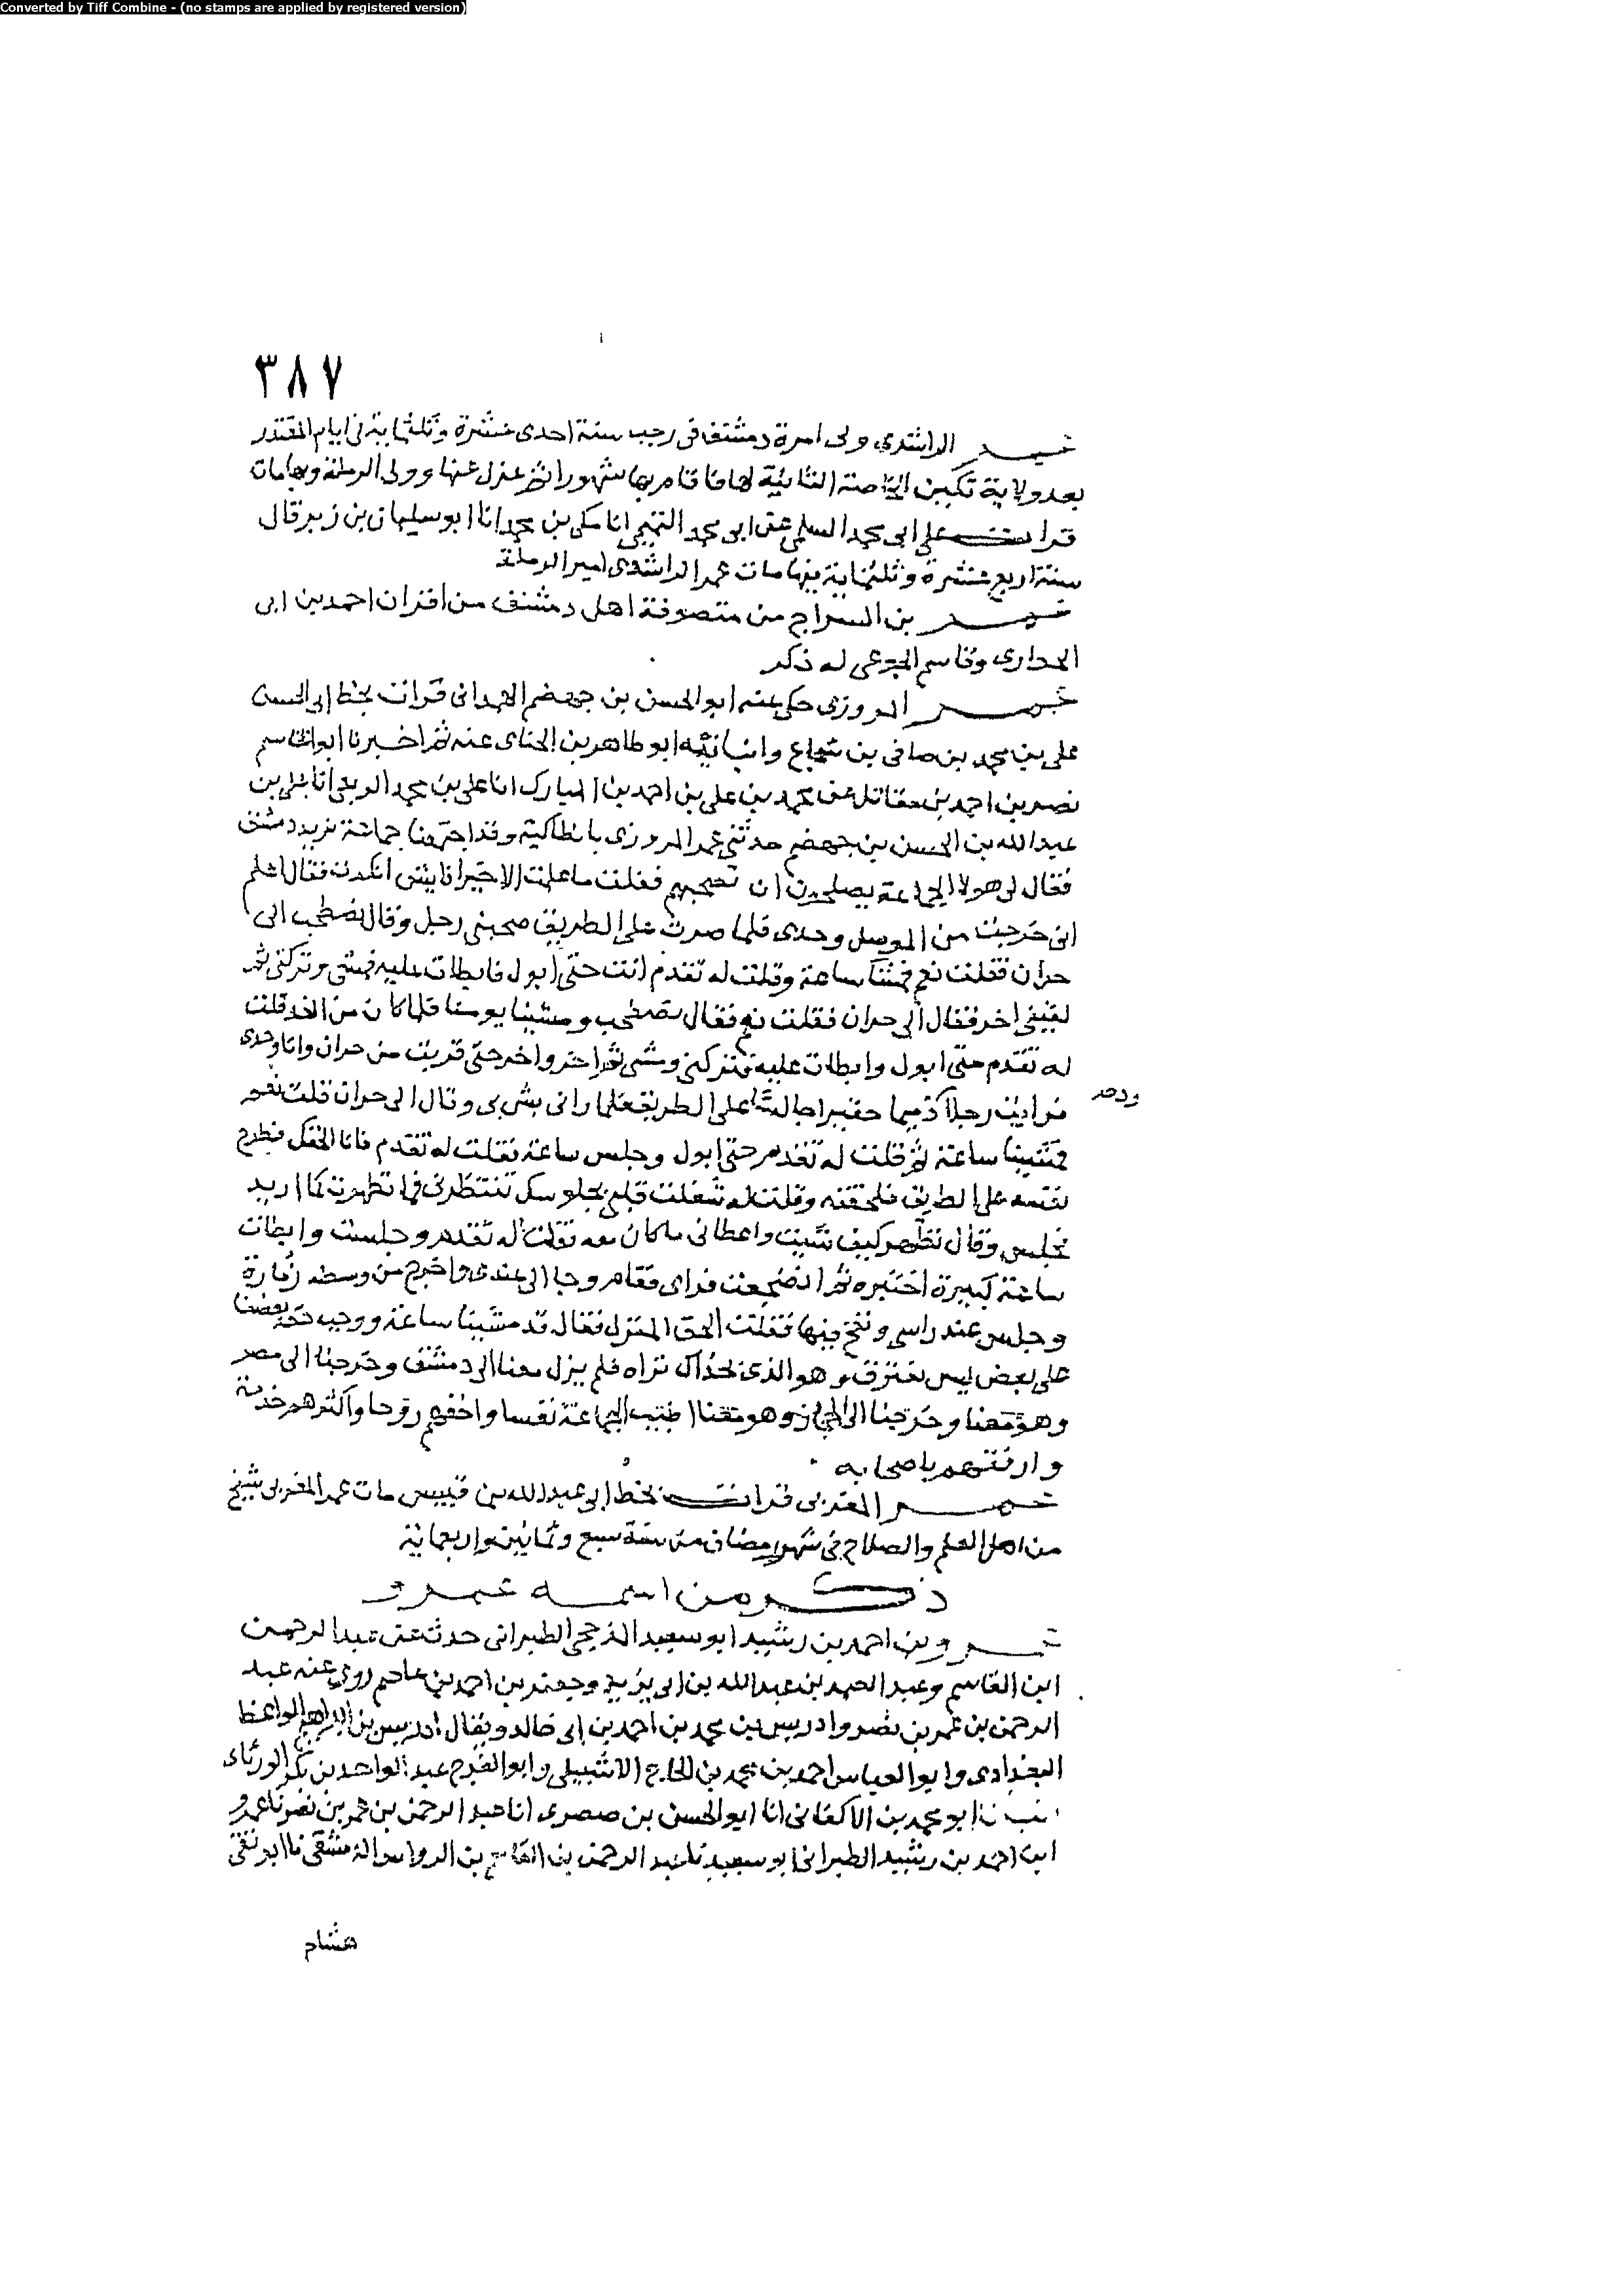 Converted by Tiff Combine - (no stamps are applied by registered version)
٣٨٧
عمر الراشدي ولى امرة دمشق في رجب سنة احدى عشرة وثلثماية في ايام المقتدر
بعد ولاية تكين الخاصة الثانية لها فاقام بها شهورا ثم عزل عنها وولى الرملة وبها مات
قرات على ابى محمد السلمي عن ابى محمد التميمي انا مكي بن محمد انا ابو سليمان بن زبر قال
سنة اربع عشرة وثلثماية فيها مات عمر الراشدي امير الرملة
عمر بن السراج من متصوفة اهل دمشق من اقران احمد بن ابى
الحوارى وقاسم الجوعى له ذكر
عمر المروزى حكى عنه ابو الحسن بن جهضم الهمدانى قرات بخط ابى الحسن
على بن محمد بن صافى بن شجاع وانبانيه ابو طاهر بن الحناى عنه ثم اخبرنا ابو القاسم
نصر بن احمد بن مقاتل عن محمد بن على بن احمد بن المبارك انا على بن محمد الربعى انا على بن
عبد الله بن الحسن بن جهضم حدثنى عمر المروزى بانطاكية وقد اجتمعنا جماعة نريد دمشق
فقال لى هولا الجماعة يصلحون ان تصحبهم فقلت ما علمت الا خيرا فايش انكرت فقال اعلم
انى خرجت من الموصل وحدى فلما صرت على الطريق صحبنى رجل وقال نصطحب الى
حران فقلت نعم فمشينا ساعة وقلت له تقدم انت حتى ابول فابطات عليه فمشى وتركنى ثم
لقينى اخر فقال الى حران فقلت نعم فقال نصطحب ومشينا يومنا فلما كان من الغد قلت
له تقدم حتى ابول وابطات عليه فتركنى ومشى ثم اخر واخر حتى قربت من حران وانا وحدى
فرايت رجلا ذميما حقيرا جالسا على الطريق فلما رانى بش بى وقال الى حران قلت نعم
فمشينا ساعة ثم قلت له تقدم حتى ابول وجلس ساعة فقلت له تقدم فانا الحقك فطرح
نفسه على الطريق فلحقته وقلت له شغلت قلبى بجلوسك تنتظرنى فما تطهرت كما اريد
فجلس وقال تطهر كيف شيت واعطانى ما كان معه فقلت له تقدم وجلست وابطات
ساعة كبيرة اختبره ثم اضطجعت فراى فقام وجا الى عندى واخرج من وسطه زمارة
وجلس عند راسى ونفخ فيها فقلت الحق المنزل فقال قد مشينا ساعة ووجب حق بعضنا
على بعض ليس نفترق وهو الذى بحذاك تراه فلم يزل معنا الى دمشق وخرجنا الى مصر
وهو معنا وخرجنا الى الحجاز وهو معنا اطيب الجماعة نفسا واخفهم روحا واكثرهم خدمة
وارفقهم باصحابه
عمر المغربى قرات بخط ابى عبد الله بن قبيس مات عمر المغربى شيخ
من اهل العلم والصلاح فى شهر رمضان من سنة سبع وثمانين واربعماية
ذكر من اسمه عمرو
عمرو بن احمد بن رشيد ابو سعيد المذحجى الطبرانى حدث عن عبد الرحمن
ابن القاسم وعبد الصمد بن عبد الله بن ابى يزيد وجعفر بن احمد بن عاصم روى عنه عبد
الرحمن بن عمر بن نصر وادريس بن محمد بن احمد بن ابى خالد ويقال ادريس بن ابراهيم الواعظ
البغدادى وابو العباس احمد بن محمد بن الحاج الاشبيلى وابو الفرج عبد الواحد بن بكر الورثاى
انبانا ابو محمد بن الاكفانى انا ابو الحسن بن صصرى انا عبد الرحمن بن عمر بن نصر نا عمرو
ابن احمد بن رشيد الطبرانى ابو سعيد نا عبد الرحمن بن القاسم بن الرواس الدمشقى نا ابو تقى
هشام